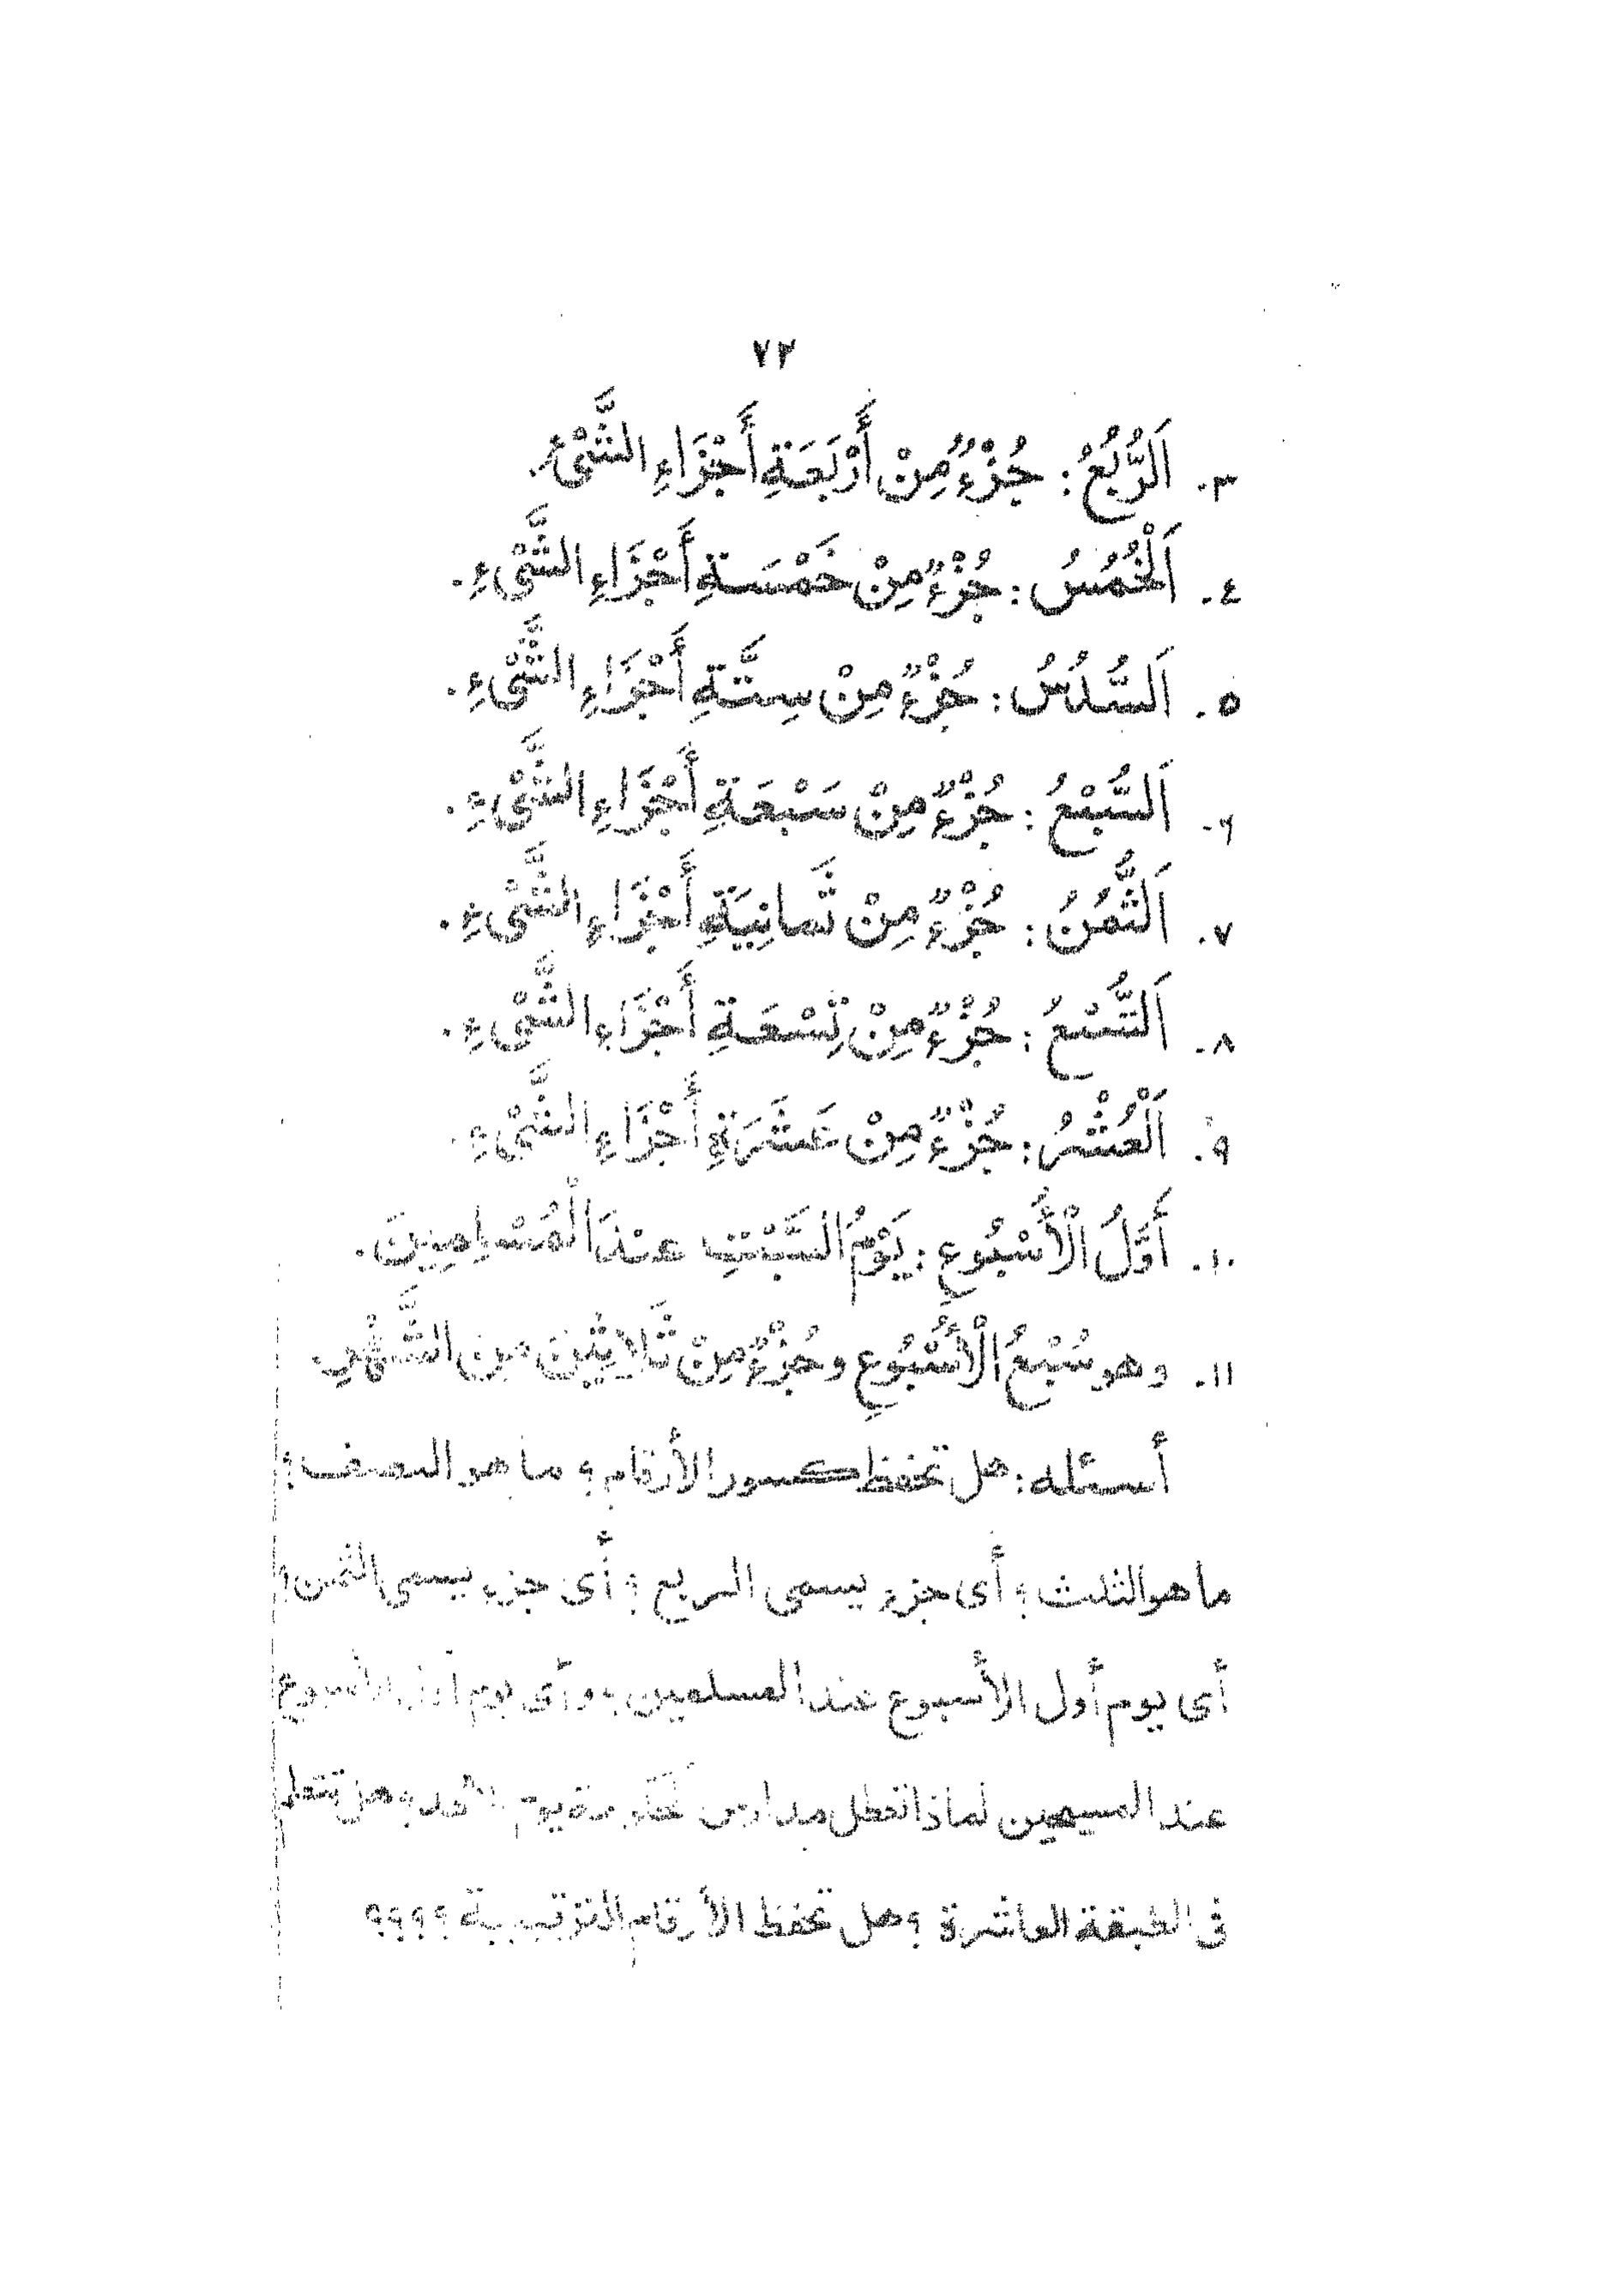 ٧٢
٣. اَلرُّبُعُ : جُزْءٌ مِنْ أَرْبَعَةِ أَجْزَاءِ الشَّيْءِ.
٤. اَلْخُمُسُ : جُزْءٌ مِنْ خَمْسَةِ أَجْزَاءِ الشَّيْءِ.
٥. اَلسُّدُسُ : جُزْءٌ مِنْ سِتَّةِ أَجْزَاءِ الشَّيْءِ.
٦. اَلسُّبْعُ : جُزْءٌ مِنْ سَبْعَةِ أَجْزَاءِ الشَّيْءِ.
٧. اَلثُّمُنُ : جُزْءٌ مِنْ ثَمانِيَةِ أَجْزَاءِ الشَّيْءِ.
٨. اَلتُّسْعُ : جُزْءٌ مِنْ تِسْعَةِ أَجْزَاءِ الشَّيْءِ.
٩. اَلْعُشْرُ : جُزْءٌ مِنْ عَشَرَةِ أَجْزَاءِ الشَّيْءِ.
١٠. أَوَّلُ الْأُسْبُوعِ : يَوْمُ السَّبْتِ عِنْدَ الْمُسْلِمِينَ.
١١. وهو سُبْعُ الْأُسْبُوعِ وجُزْءٌ مِنْ ثَلاثِيْنَ من الشَّهْرِ.
أسئله : هل تحفظ كسور الأرقام ؟ ما هو النصف ؟
ما هو الثلث ؟ أى جزء يسمى الربع ؟ أى جزء يسمى الثمن ؟
أى يوم أول الأسبوع عند المسلمين ؟ وأى يوم أول الأسبوع
عند المسيحين لماذا تعطل مدارس الحكومة يوم الأحد ؟ هل تتعلم
فى الطبقة العاشرة ؟ هل تحفظ الأرقام الترتيبية ؟ ؟ ؟ ؟